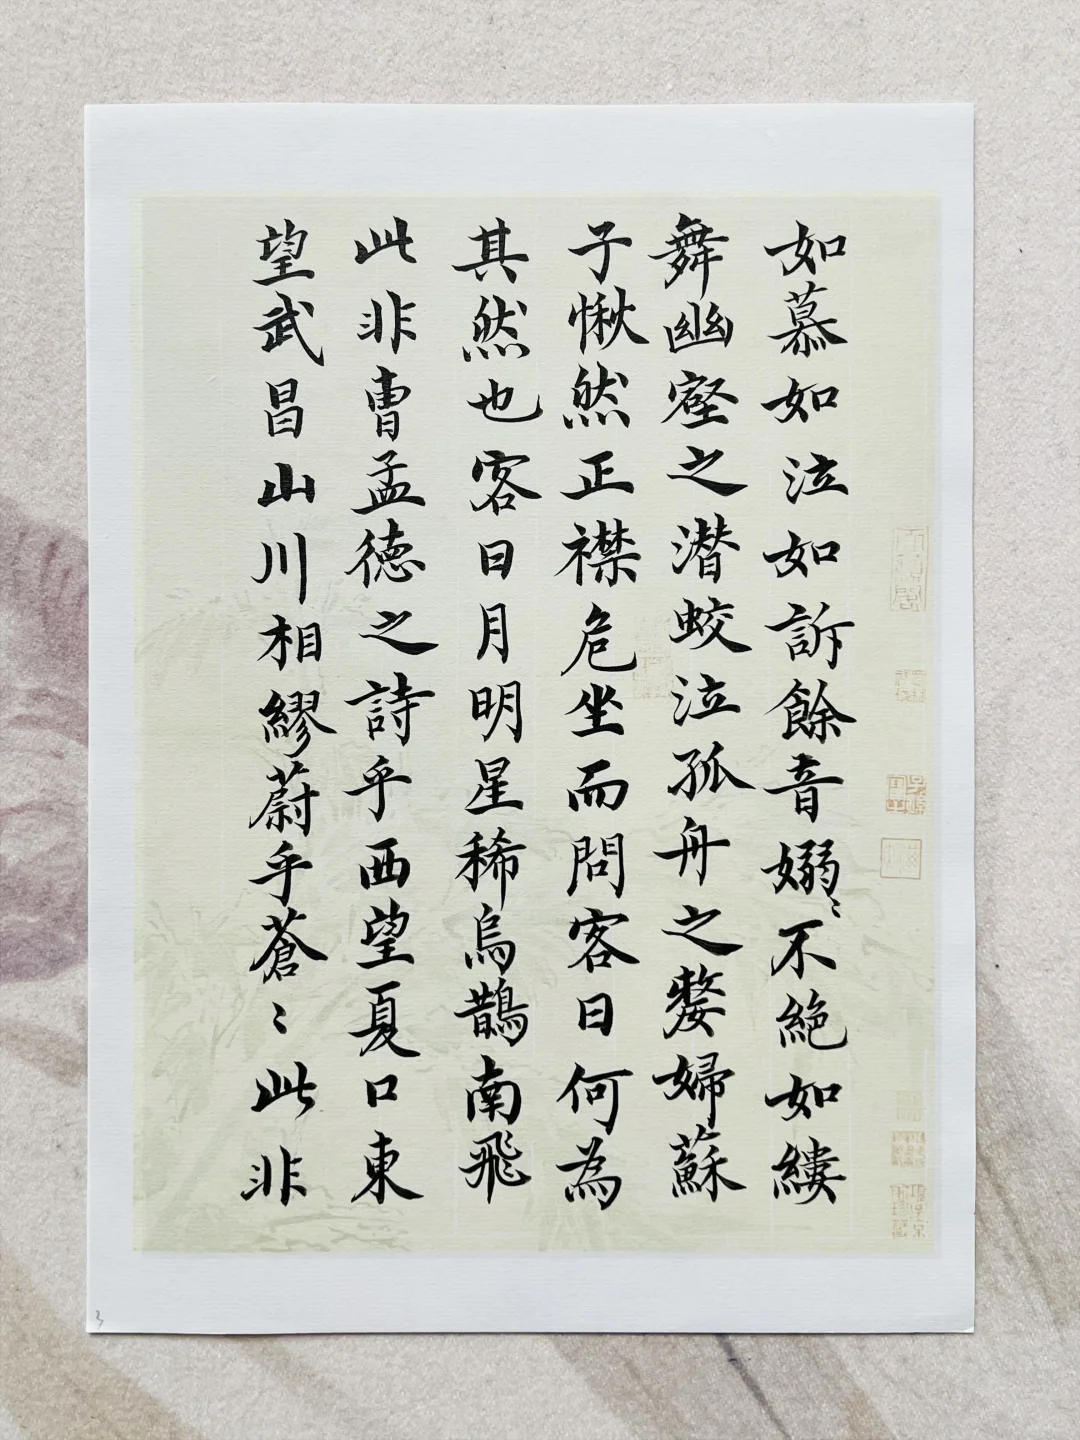 如慕如泣如訴餘音嫋〻不絕如縷
舞幽壑之潛蛟泣孤舟之嫠婦蘇
子愀然正襟危坐而問客曰何為
其然也客曰月明星稀烏鵲南飛
此非曹孟德之詩乎西望夏口東
望武昌山川相繆蔚乎蒼〻此非
3